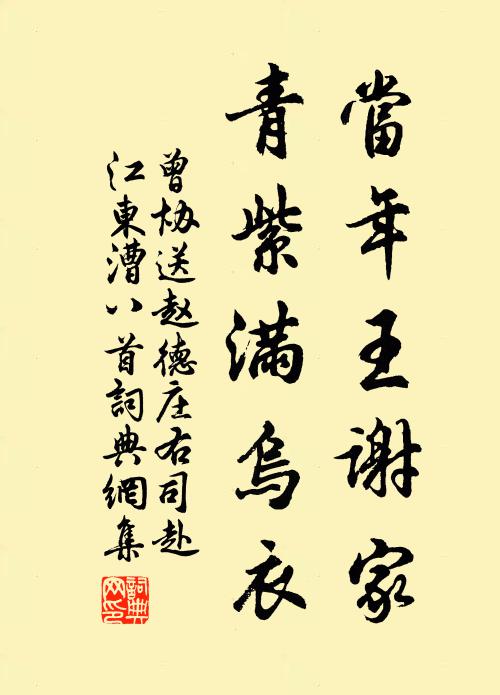 當年王謝家
青紫滿烏衣
曾协送赵德庄右司赴
江東漕八首詞典網集
詞典
网印